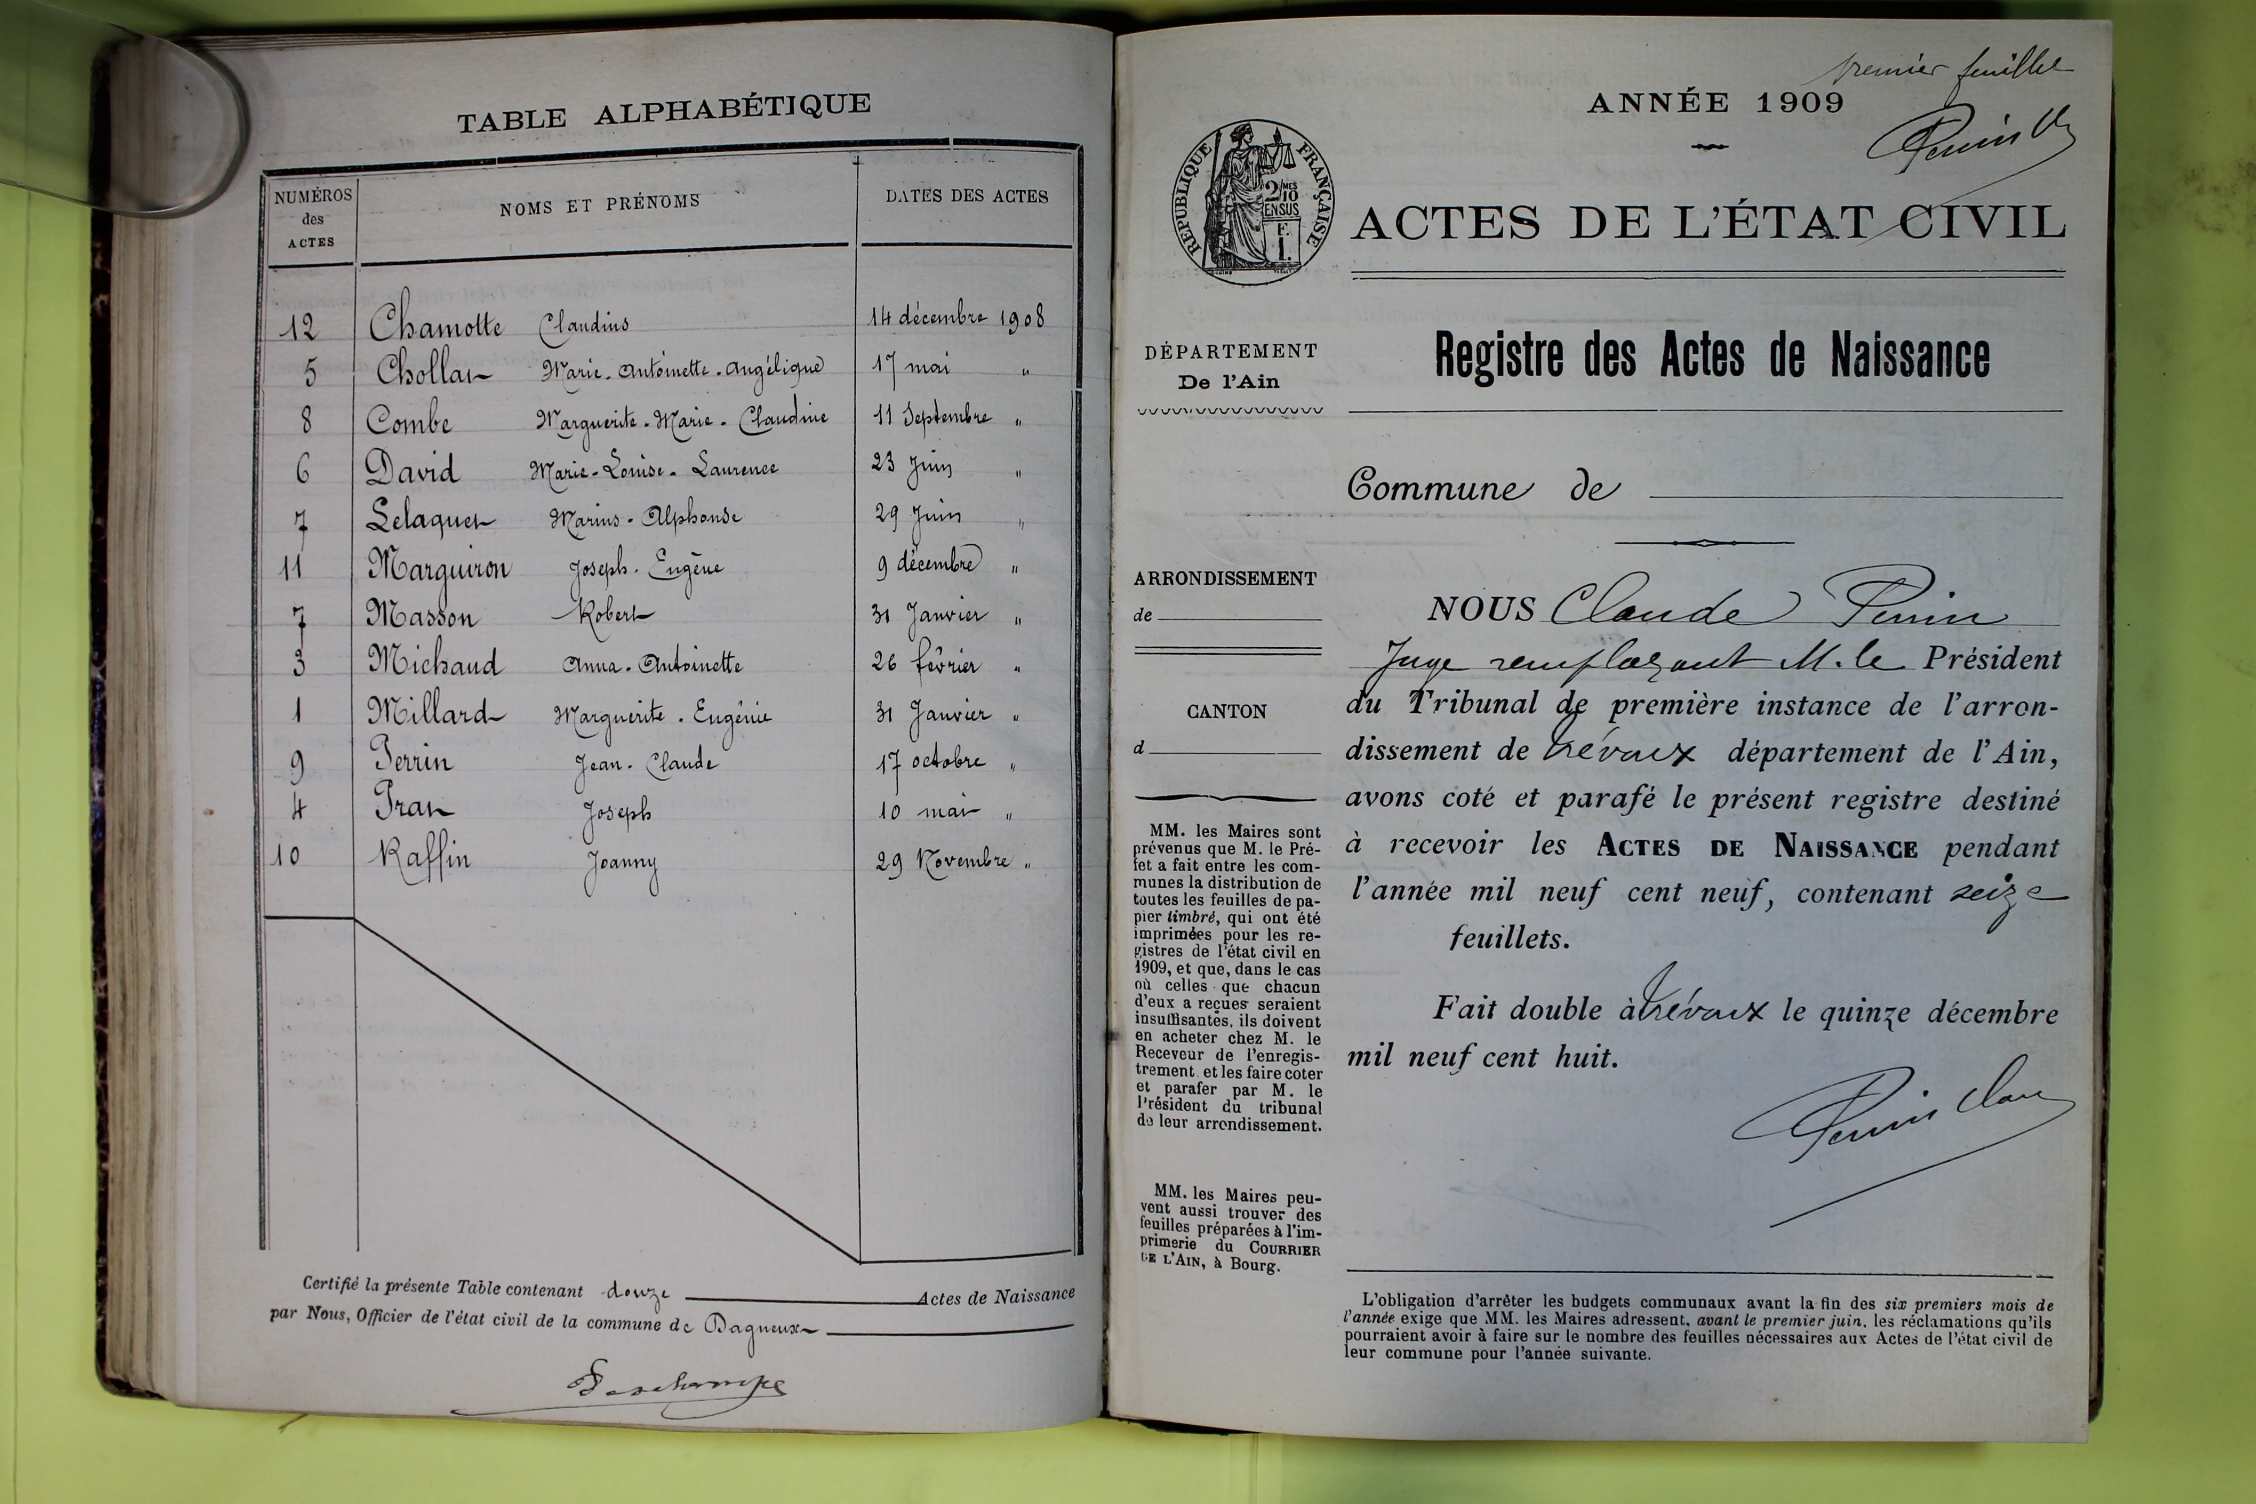 TABLE ALPHABÉTIQUE
NUMÉROS des ACTES NOMS ET PRÉNOMS DATES DES ACTES
12 Chamotte Claudius 14 décembre 1908
5 Chollat Marie-Antoinette-Angélique 17 mai "
8 Combe Marguerite-Marie-Claudine 11 Septembre "
6 David Marie-Louise-Laurence 23 Juin "
7 Lelaquet Marius-Alphonse 29 Juin "
11 Marguiron Joseph-Eugène 9 décembre "
7 Masson Robert 31 Janvier "
3 Michaud Anna-Antoinette 26 février "
1 Millard Marguerite-Eugénie 31 Janvier "
9 Perrin Jean-Claude 17 octobre "
4 Prat Joseph 10 mai "
10 Raffin Joanny 29 Novembre "
Certifié la présente Table contenant douze Actes de Naissance
par Nous, Officier de l'état civil de la commune de Dagneux
Deschamps
premier feuillet
ANNÉE 1909
Perrin
RÉPUBLIQUE FRANÇAISE
2/10MES
EN SUS
F.
1.
ACTES DE L'ÉTAT CIVIL
DÉPARTEMENT
De l'Ain
Registre des Actes de Naissance
Commune de
ARRONDISSEMENT
de
CANTON
d
MM. les Maires sont
prévenus que M. le Pré-
fet a fait entre les com-
munes la distribution de
toutes les feuilles de pa-
pier timbré, qui ont été
imprimées pour les re-
gistres de l'état civil en
1909, et que, dans le cas
où celles que chacun
d'eux a reçues seraient
insuffisantes, ils doivent
en acheter chez M. le
Receveur de l'enregis-
trement et les faire coter
et parafer par M. le
Président du tribunal
de leur arrondissement.
MM. les Maires peu-
vent aussi trouver des
feuilles préparées à l'im-
primerie du COURRIER
DE L'AIN, à Bourg.
NOUS Claude Perrin
Juge remplaçant M. le Président
du Tribunal de première instance de l'arron-
dissement de Trévoux département de l'Ain,
avons coté et parafé le présent registre destiné
à recevoir les ACTES DE NAISSANCE pendant
l'année mil neuf cent neuf, contenant seize
feuillets.
Fait double à Trévoux le quinze décembre
mil neuf cent huit.
Perrin Claude
L'obligation d'arrêter les budgets communaux avant la fin des six premiers mois de
l'année exige que MM. les Maires adressent, avant le premier juin, les réclamations qu'ils
pourraient avoir à faire sur le nombre des feuilles nécessaires aux Actes de l'état civil de
leur commune pour l'année suivante.